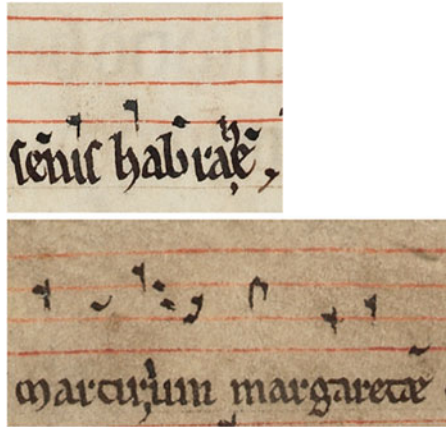 sēnis habrahę
martirium margaretæ